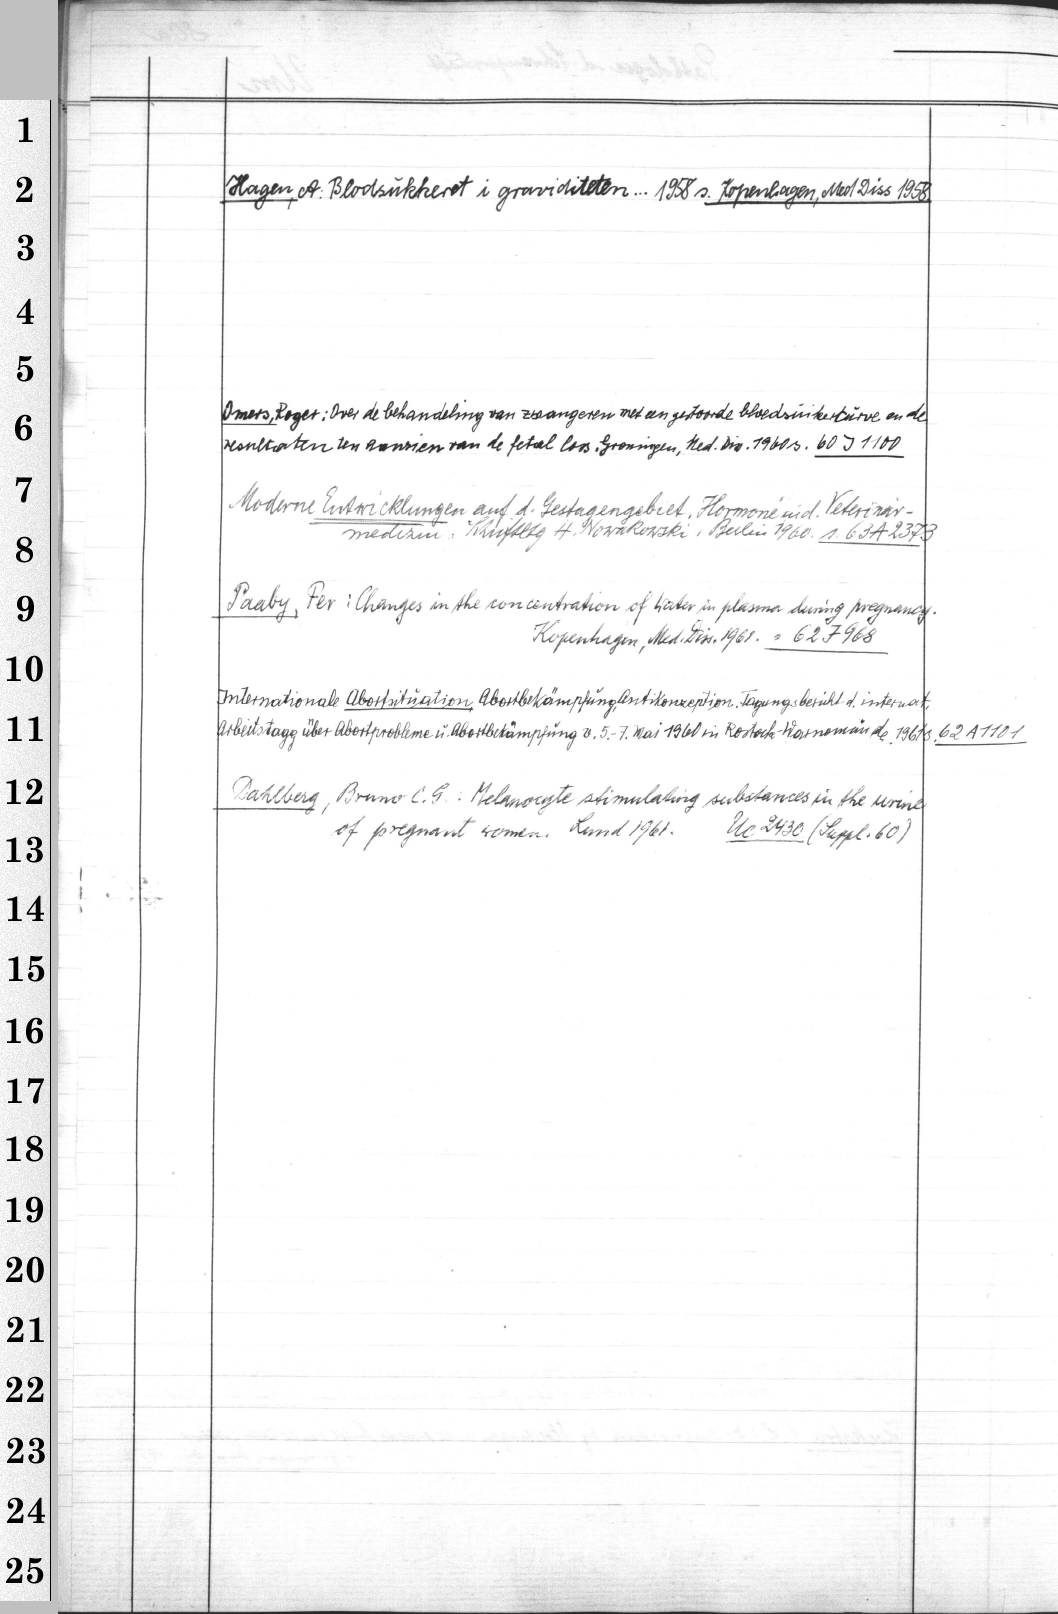 1
2
Hagen, A: Blodsukkeret i graviditeten... 1958 s. Kopenhagen, Med Diss 1958.
3
4
5
6
Omers, Roger: Over de behandeling van zwangeren met een gestoorde bloedsuikercurve en de
resultaten ten aanzien van de fetal loss. Groningen, Med. Diss. 1960 s. 60 J 1100
7
Moderne Entwicklungen auf d. Gestagengebiet, Hormone in d. Veterinär-
8
medizin. Schriftltg H. Nowakowski, Berlin 1960. s. 63 A 2373
9
Paaby, Per: Changes in the concentration of water in plasma during pregnancy.
Kopenhagen, Med. Diss. 1961. = 62 J 968
10
Internationale Abortsituation, Abortbekämpfung, Antikonzeption. Tagungsbericht d. internat.
11
Arbeitstagg über Abortprobleme u. Abortbekämpfung v. 5.-7. Mai 1960 in Rostock-Warnemünde. 1961 s. 62 A 1101
12
Dahlberg, Bruno C. G.: Melanocyte stimulating substances in the urine
13
of pregnant women. Lund 1961. Uc 2430 (Suppl. 60)
14
15
16
17
18
19
20
21
22
23
24
25